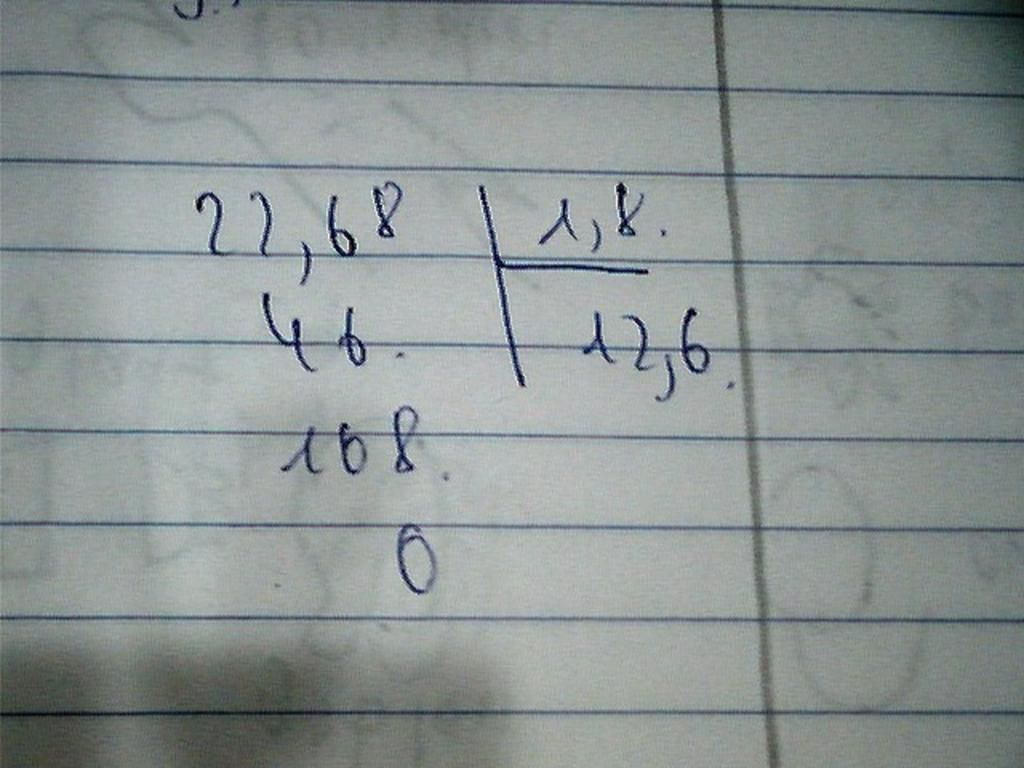 22,68 1,8.
46. 12,6.
108.
0